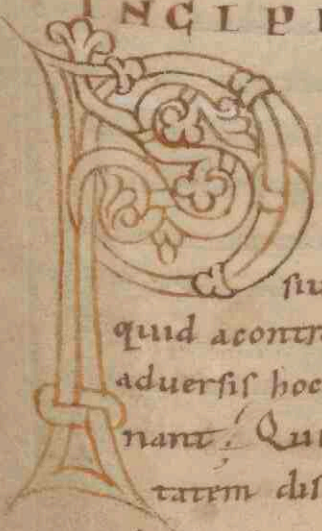 INCIPI
P
siu
quid acontra
adversis hoc
nant; Qui
tatem dis